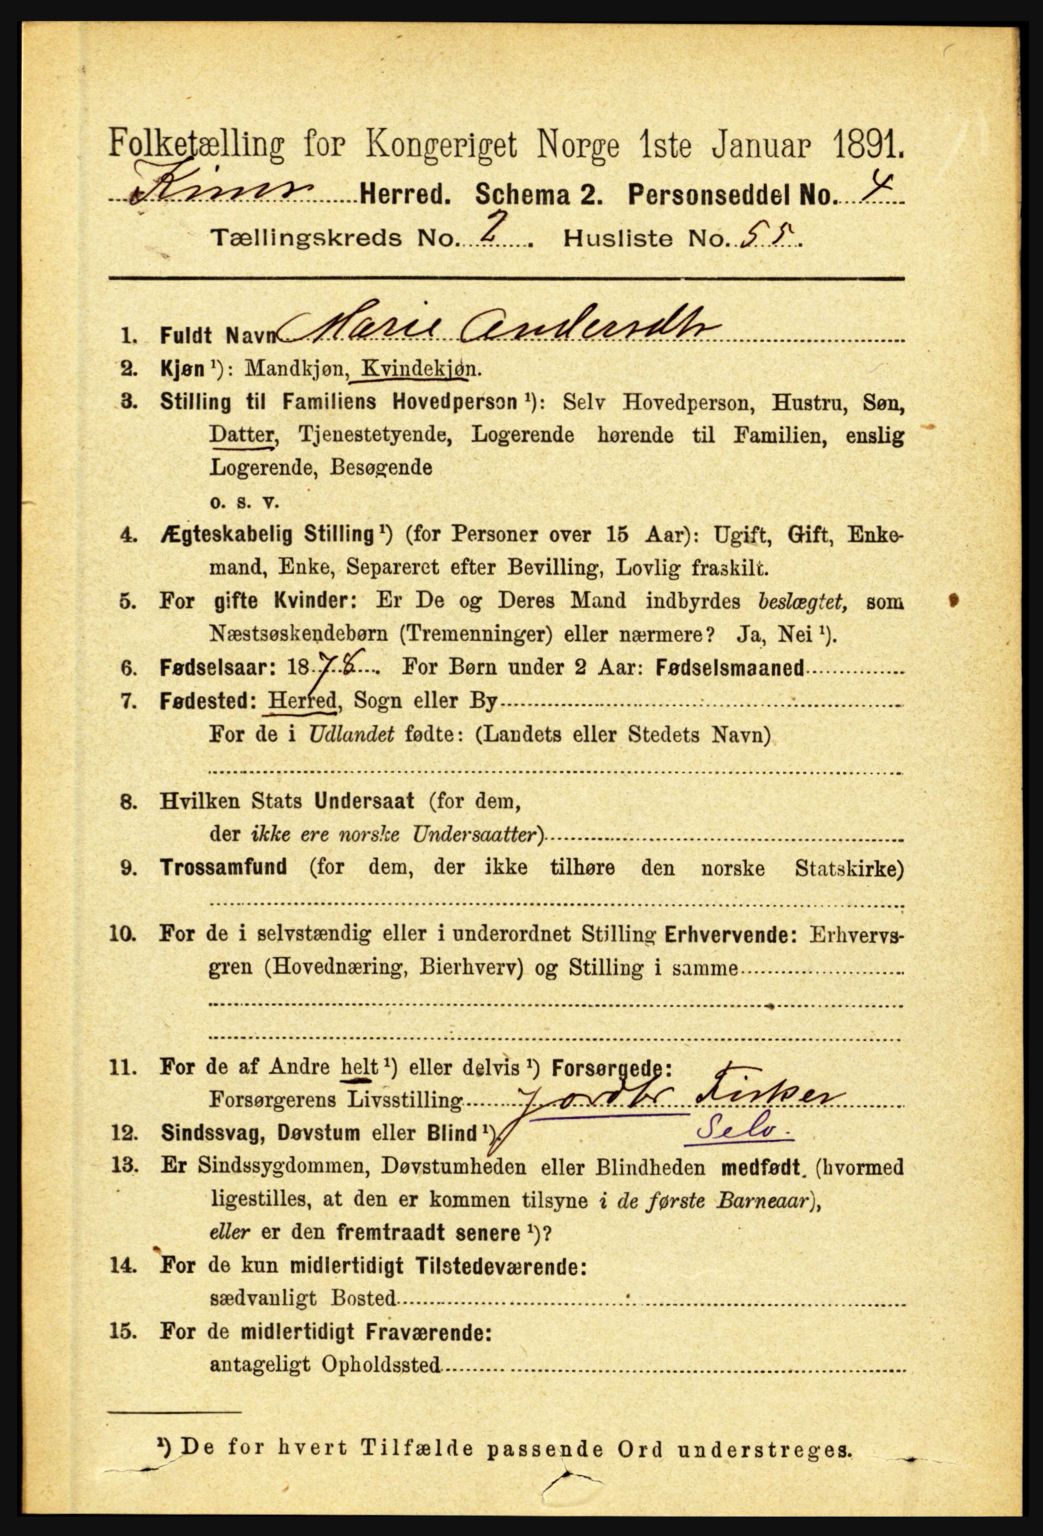 Folketælling for Kongeriget Norge 1ste Januar 1891.
Kinn Herred. Schema 2. Personseddel No. 4
Tællingskreds No. 2. Husliste No. 55.
1. Fuldt Navn Marie Andersdtr
2. Kjøn ¹): Mandkjøn, Kvindekjøn.
3. Stilling til Familiens Hovedperson ¹): Selv Hovedperson, Hustru, Søn,
Datter, Tjenestetyende, Logerende hørende til Familien, enslig
Logerende, Besøgende
o. s. v.
4. Ægteskabelig Stilling ¹) (for Personer over 15 Aar): Ugift, Gift, Enke-
mand, Enke, Separeret efter Bevilling, Lovlig fraskilt.
5. For gifte Kvinder: Er De og Deres Mand indbyrdes beslægtet, som
Næstsøskendebørn (Tremenninger) eller nærmere? Ja, Nei ¹).
6. Fødselsaar: 1878. For Børn under 2 Aar: Fødselsmaaned
7. Fødested: Herred, Sogn eller By
For de i Udlandet fødte: (Landets eller Stedets Navn)
8. Hvilken Stats Undersaat (for dem,
der ikke ere norske Undersaatter)
9. Trossamfund (for dem, der ikke tilhøre den norske Statskirke)
10. For de i selvstændig eller i underordnet Stilling Erhvervende: Erhvervs-
gren (Hovednæring, Bierhverv) og Stilling i samme
11. For de af Andre helt ¹) eller delvis ¹) Forsørgede:
Forsørgerens Livsstilling Jordbr Fisker
12. Sindssvag, Døvstum eller Blind ¹). Selv.
13. Er Sindssygdommen, Døvstumheden eller Blindheden medfødt. (hvormed
ligestilles, at den er kommen tilsyne i de første Barneaar),
eller er den fremtraadt senere ¹)?
14. For de kun midlertidigt Tilstedeværende:
sædvanligt Bosted
15. For de midlertidigt Fraværende:
antageligt Opholdssted
¹) De for hvert Tilfælde passende Ord understreges.